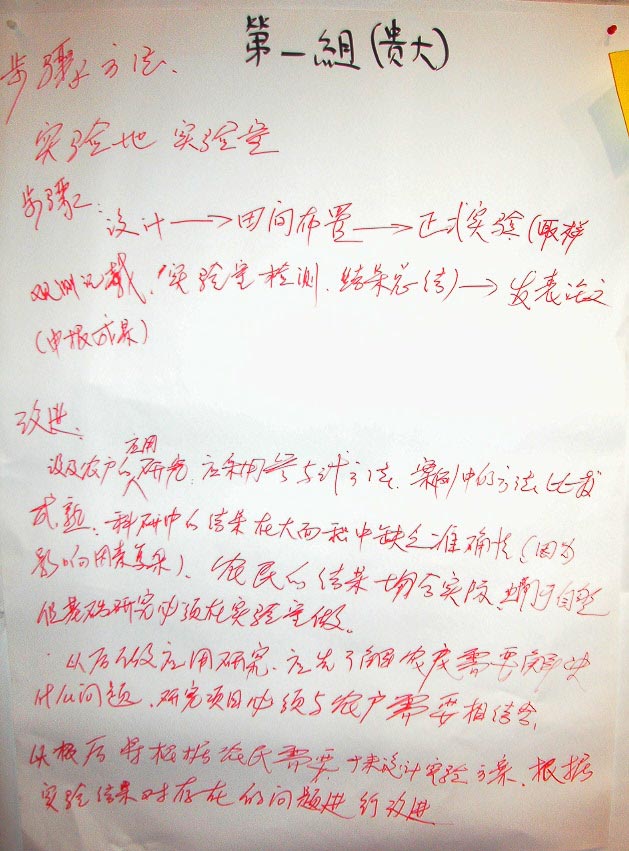 第一組(贵大)
步骤及方法:
实验地 实验室
步骤:
设计→田间布置→正式实验(取样
观测记载、实验室检测、结果总结)→发表论文
(申报成果)
改进:
应用
涉及农户的研究,应采用参与式方法、案例中的方法比较
成熟,科研中的结果在大面积中缺乏准确性(因为
影响因素复杂)、农民的结果切合实际,
但基础研究必须在实验室做。
以后做应用研究,应先了解农民需要解决
什么问题,研究项目必须与农户需要相结合,
从 后 根据农民需要来设计实验方案,根据
实验结果对存在的问题进行改进